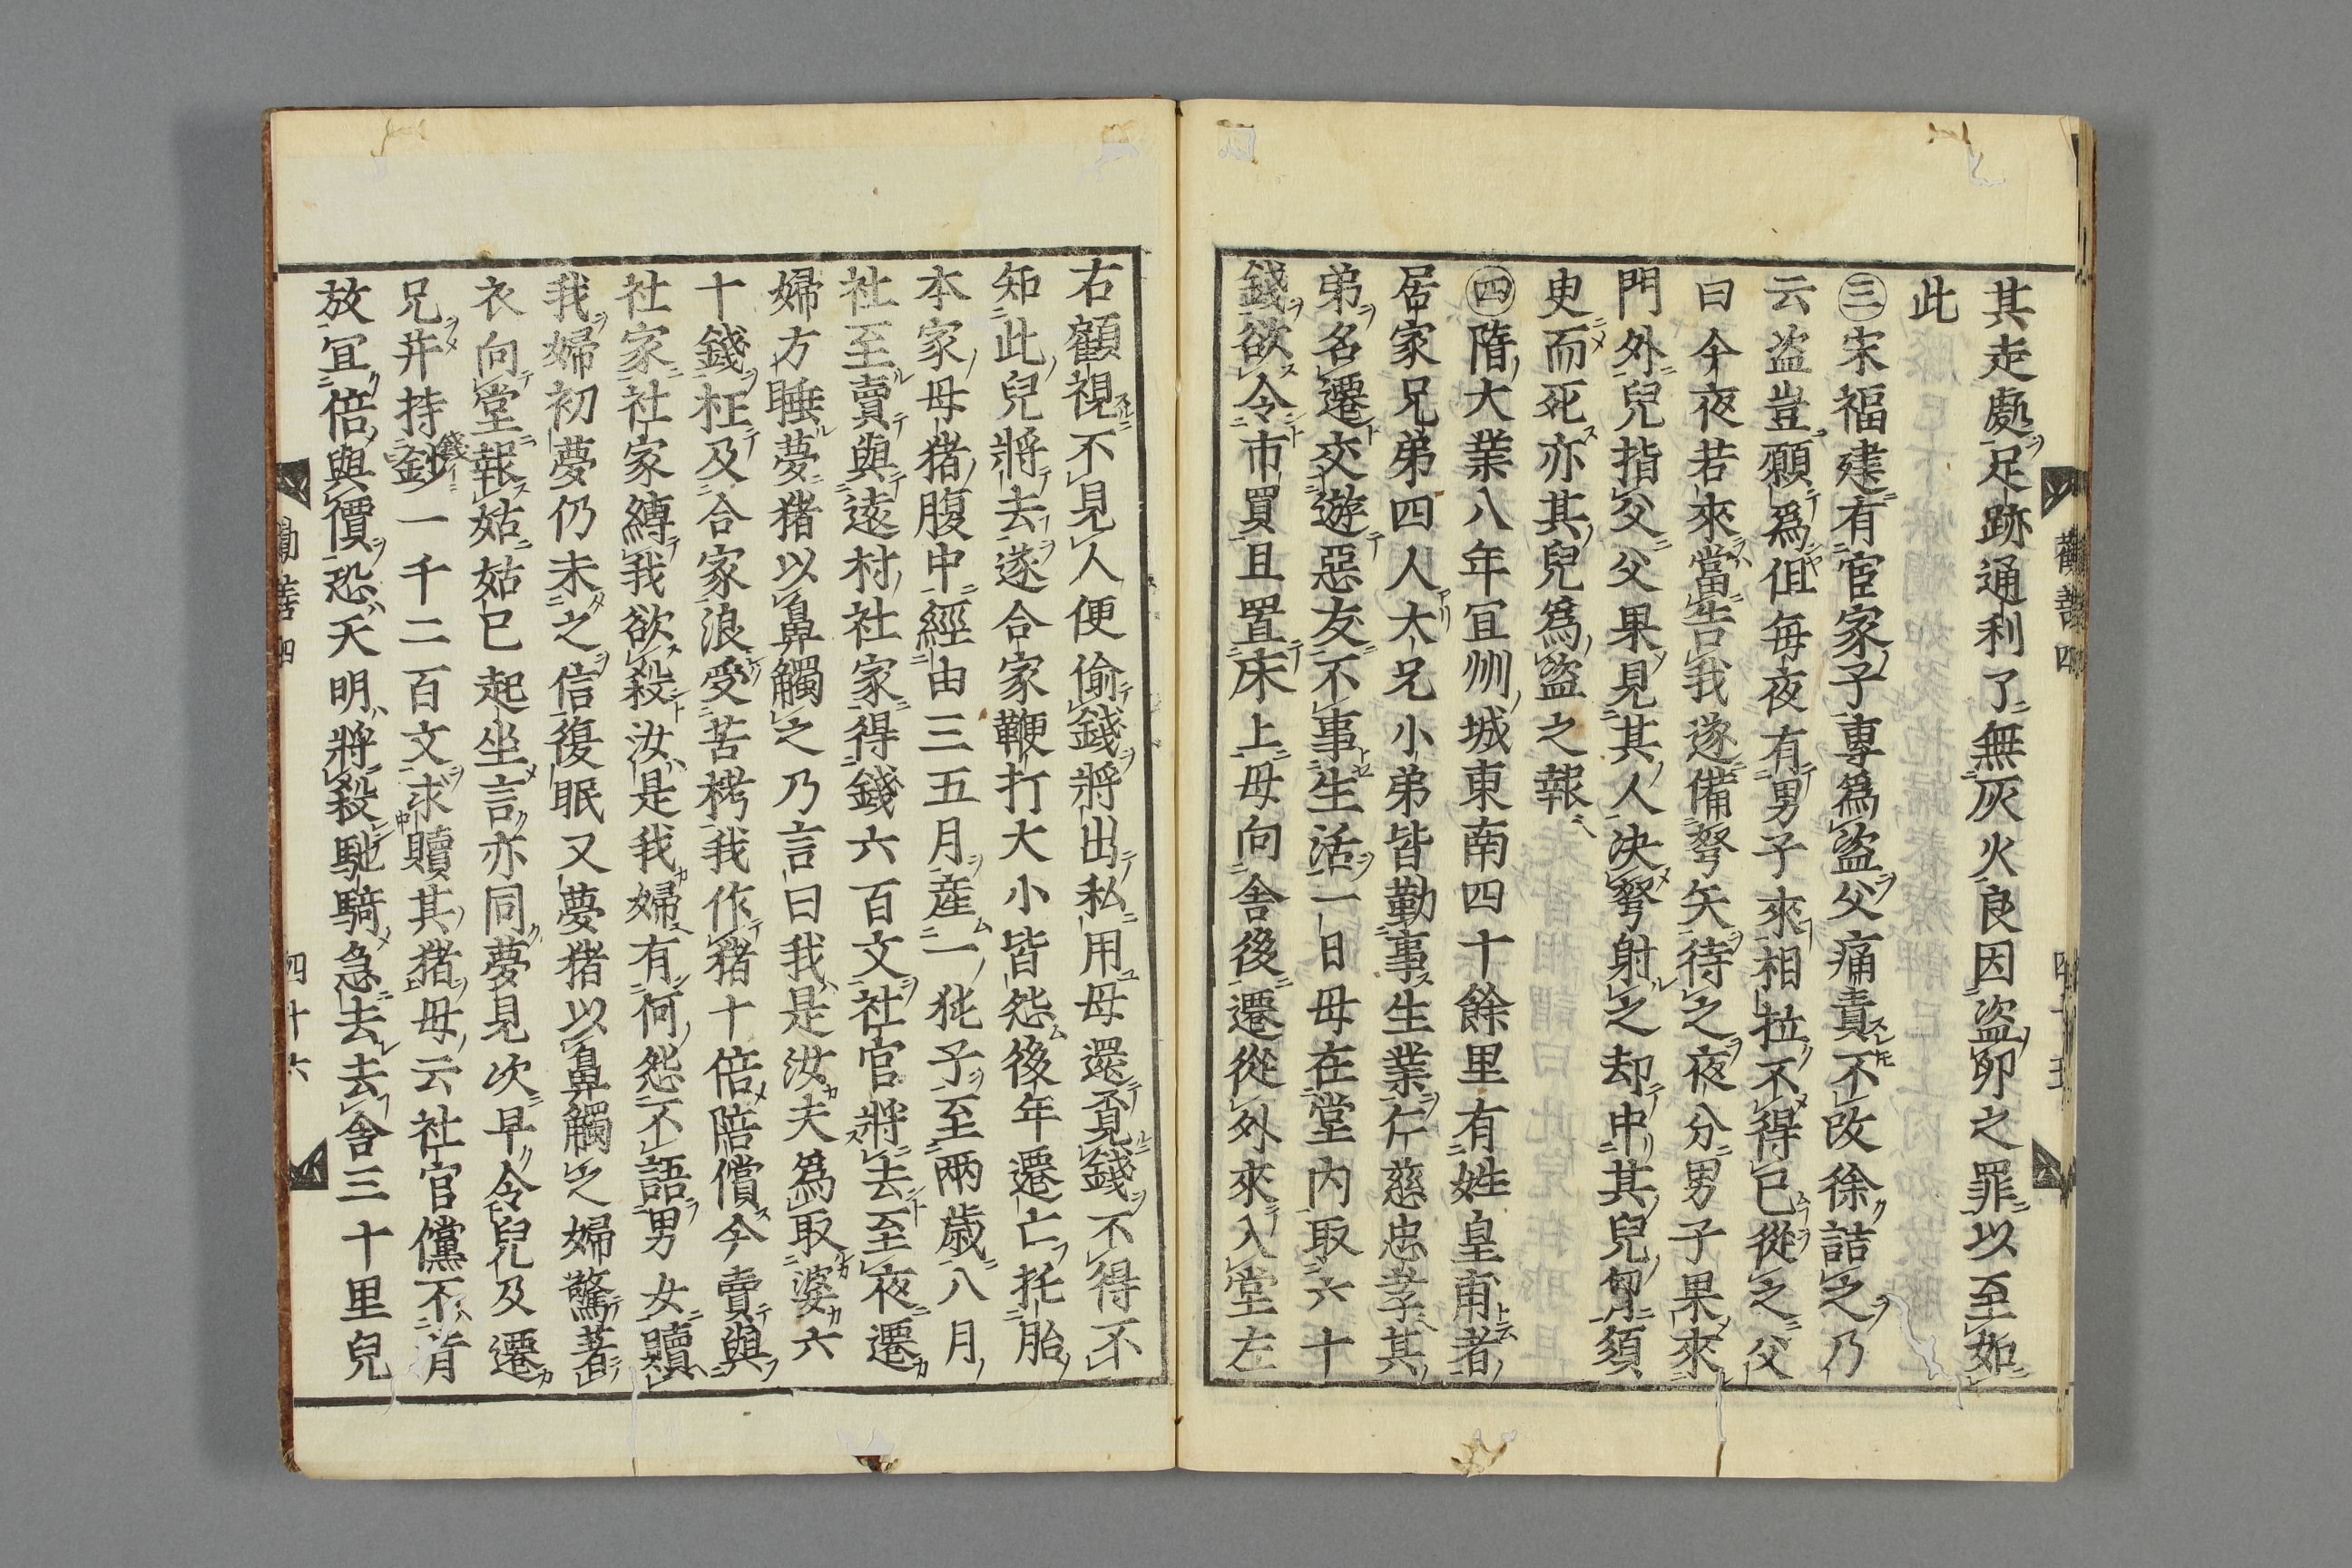 其走處足跡通利了無灰火良因盜卵之罪以至如
此
㊂宋福建有宦家子專爲盜父痛責不改徐詰之乃
云盜豈願爲但每夜有男子來相拉不得已從之父
曰今夜若來當告我遂備弩矢待之夜分男子果來
門外兒指父父果見其人決弩射之却中其兒匈須
臾而死亦其兒爲盜之報
㊃隋大業八年冝州城東南四十餘里有姓皇甫者
居家兄弟四人大兄小弟皆勤事生業仁慈忠孝其
弟名遷交遊惡友不事生活一日母在堂内取六十
錢欲令市買且置床上母向舍後遷從外來入堂左
右顧視不見人便偷錢將出私用母還覓錢不得不
知此兒將去遂合家鞭打大小皆怨後年遷亡托胎
本家母猪腹中經由三五月産一㹠子至兩歳八月
社至賣與遠村社家得錢六百文社官將去至夜遷
婦方睡夢猪以鼻觸之乃言曰我是汝夫爲取婆六
十錢枉及合家浪受苦栲我作猪十倍陪償今賣與
社家社家縛我欲殺汝是我婦有何怨不語男女贖
我婦初夢仍未之信復眠又夢猪以鼻觸之婦驚著
衣向堂報姑姑已起坐言亦同夢見次早令兒及遷
兄幷持鈔一千二百文求贖其猪母云社官儻不肯
放冝倍與價恐天明將殺馳騎急去去舍三十里兒
勸善四
四十五
勸善四
四十六